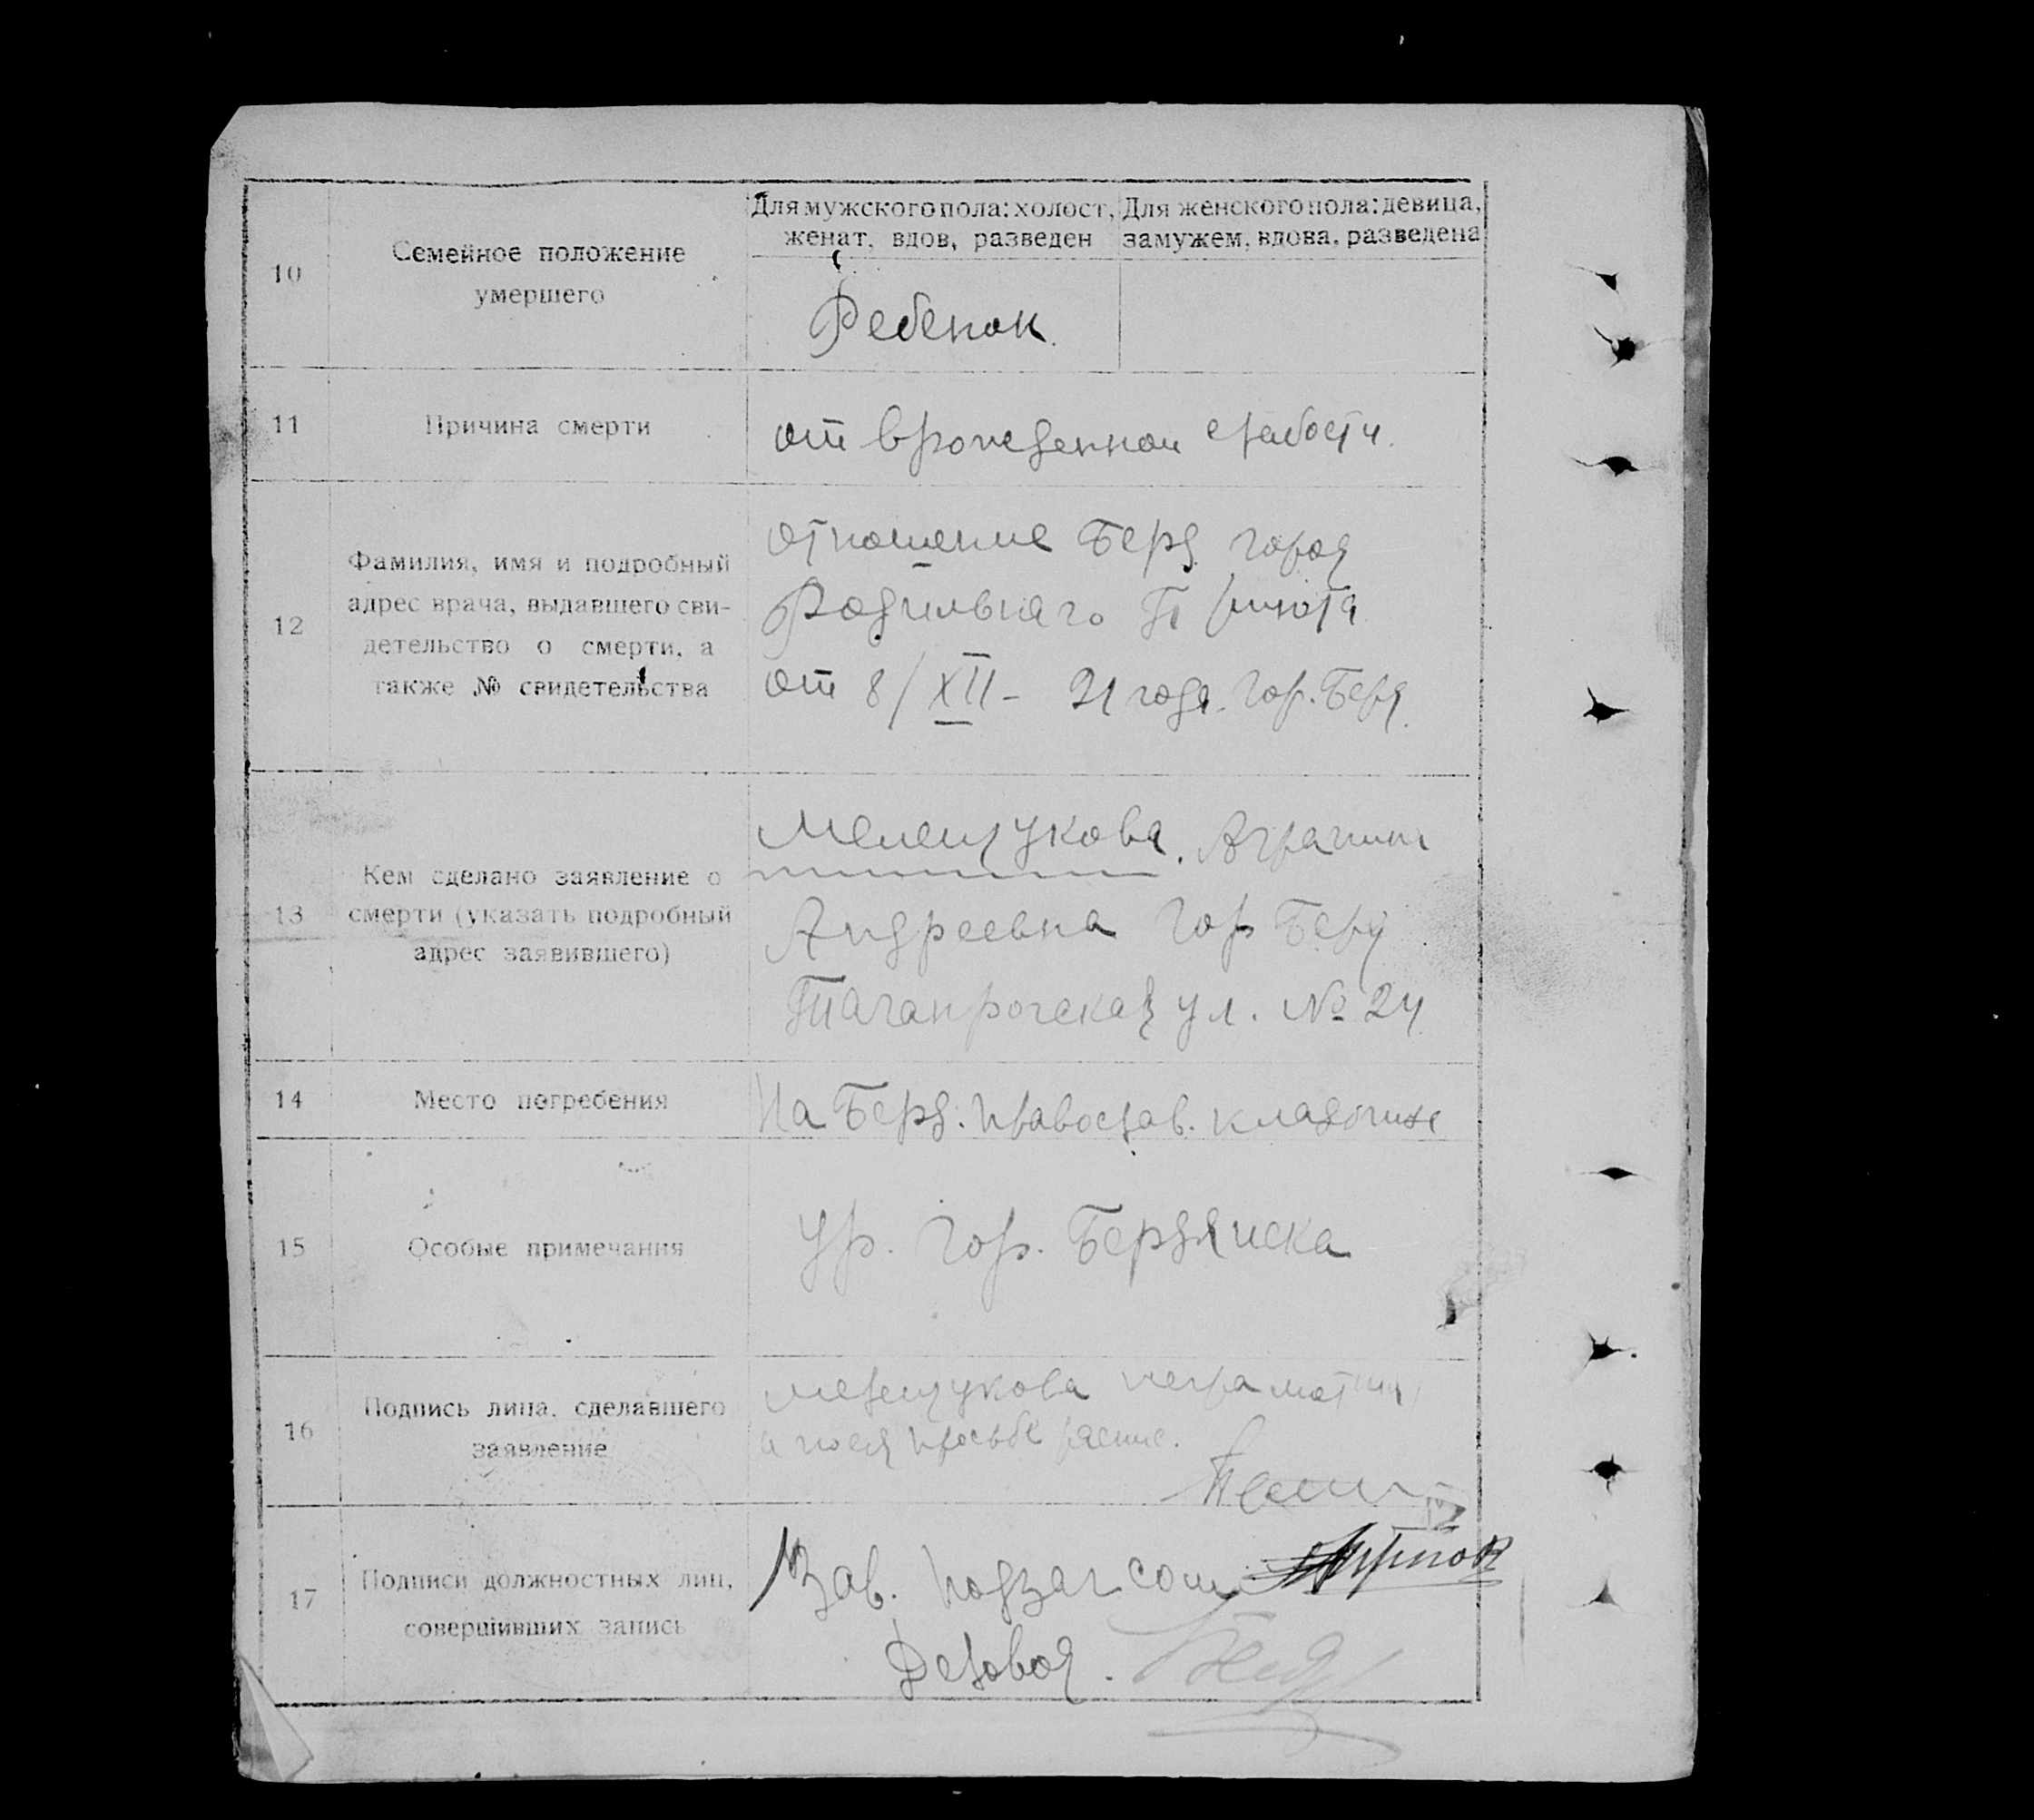 Для мужского пола: холост, женат, вдов, разведен
Для женского пола: девица, замужем, вдова, разведена
10
Семейное положение
умершего
Ребенок.
11
Причина смерти
от врожденной слабости.
12
Фамилия, имя и подробный
адрес врача, выдавшего сви-
детельство о смерти, а
также № свидетельства
отношение Берд. город
Родильнаго Приюта
от 8/XII - 21 года. Гор. Берд.
13
Кем сделано заявление о
смерти (указать подробный
адрес заявившего)
Мелещукова.
Андреевна Гор Берд.
Таганрогская ул. № 24
14
Место погребения
На Берд. Православ. кладбище
15
Особые примечания
Ур. Гор. Бердянска
16
Подпись лица, сделавшего
заявление
Мелещукова неграмотная
а по ея просьбе распис.
17
Подписи должностных лиц,
совершивших запись
Зав. Подзагсом
Деловод.